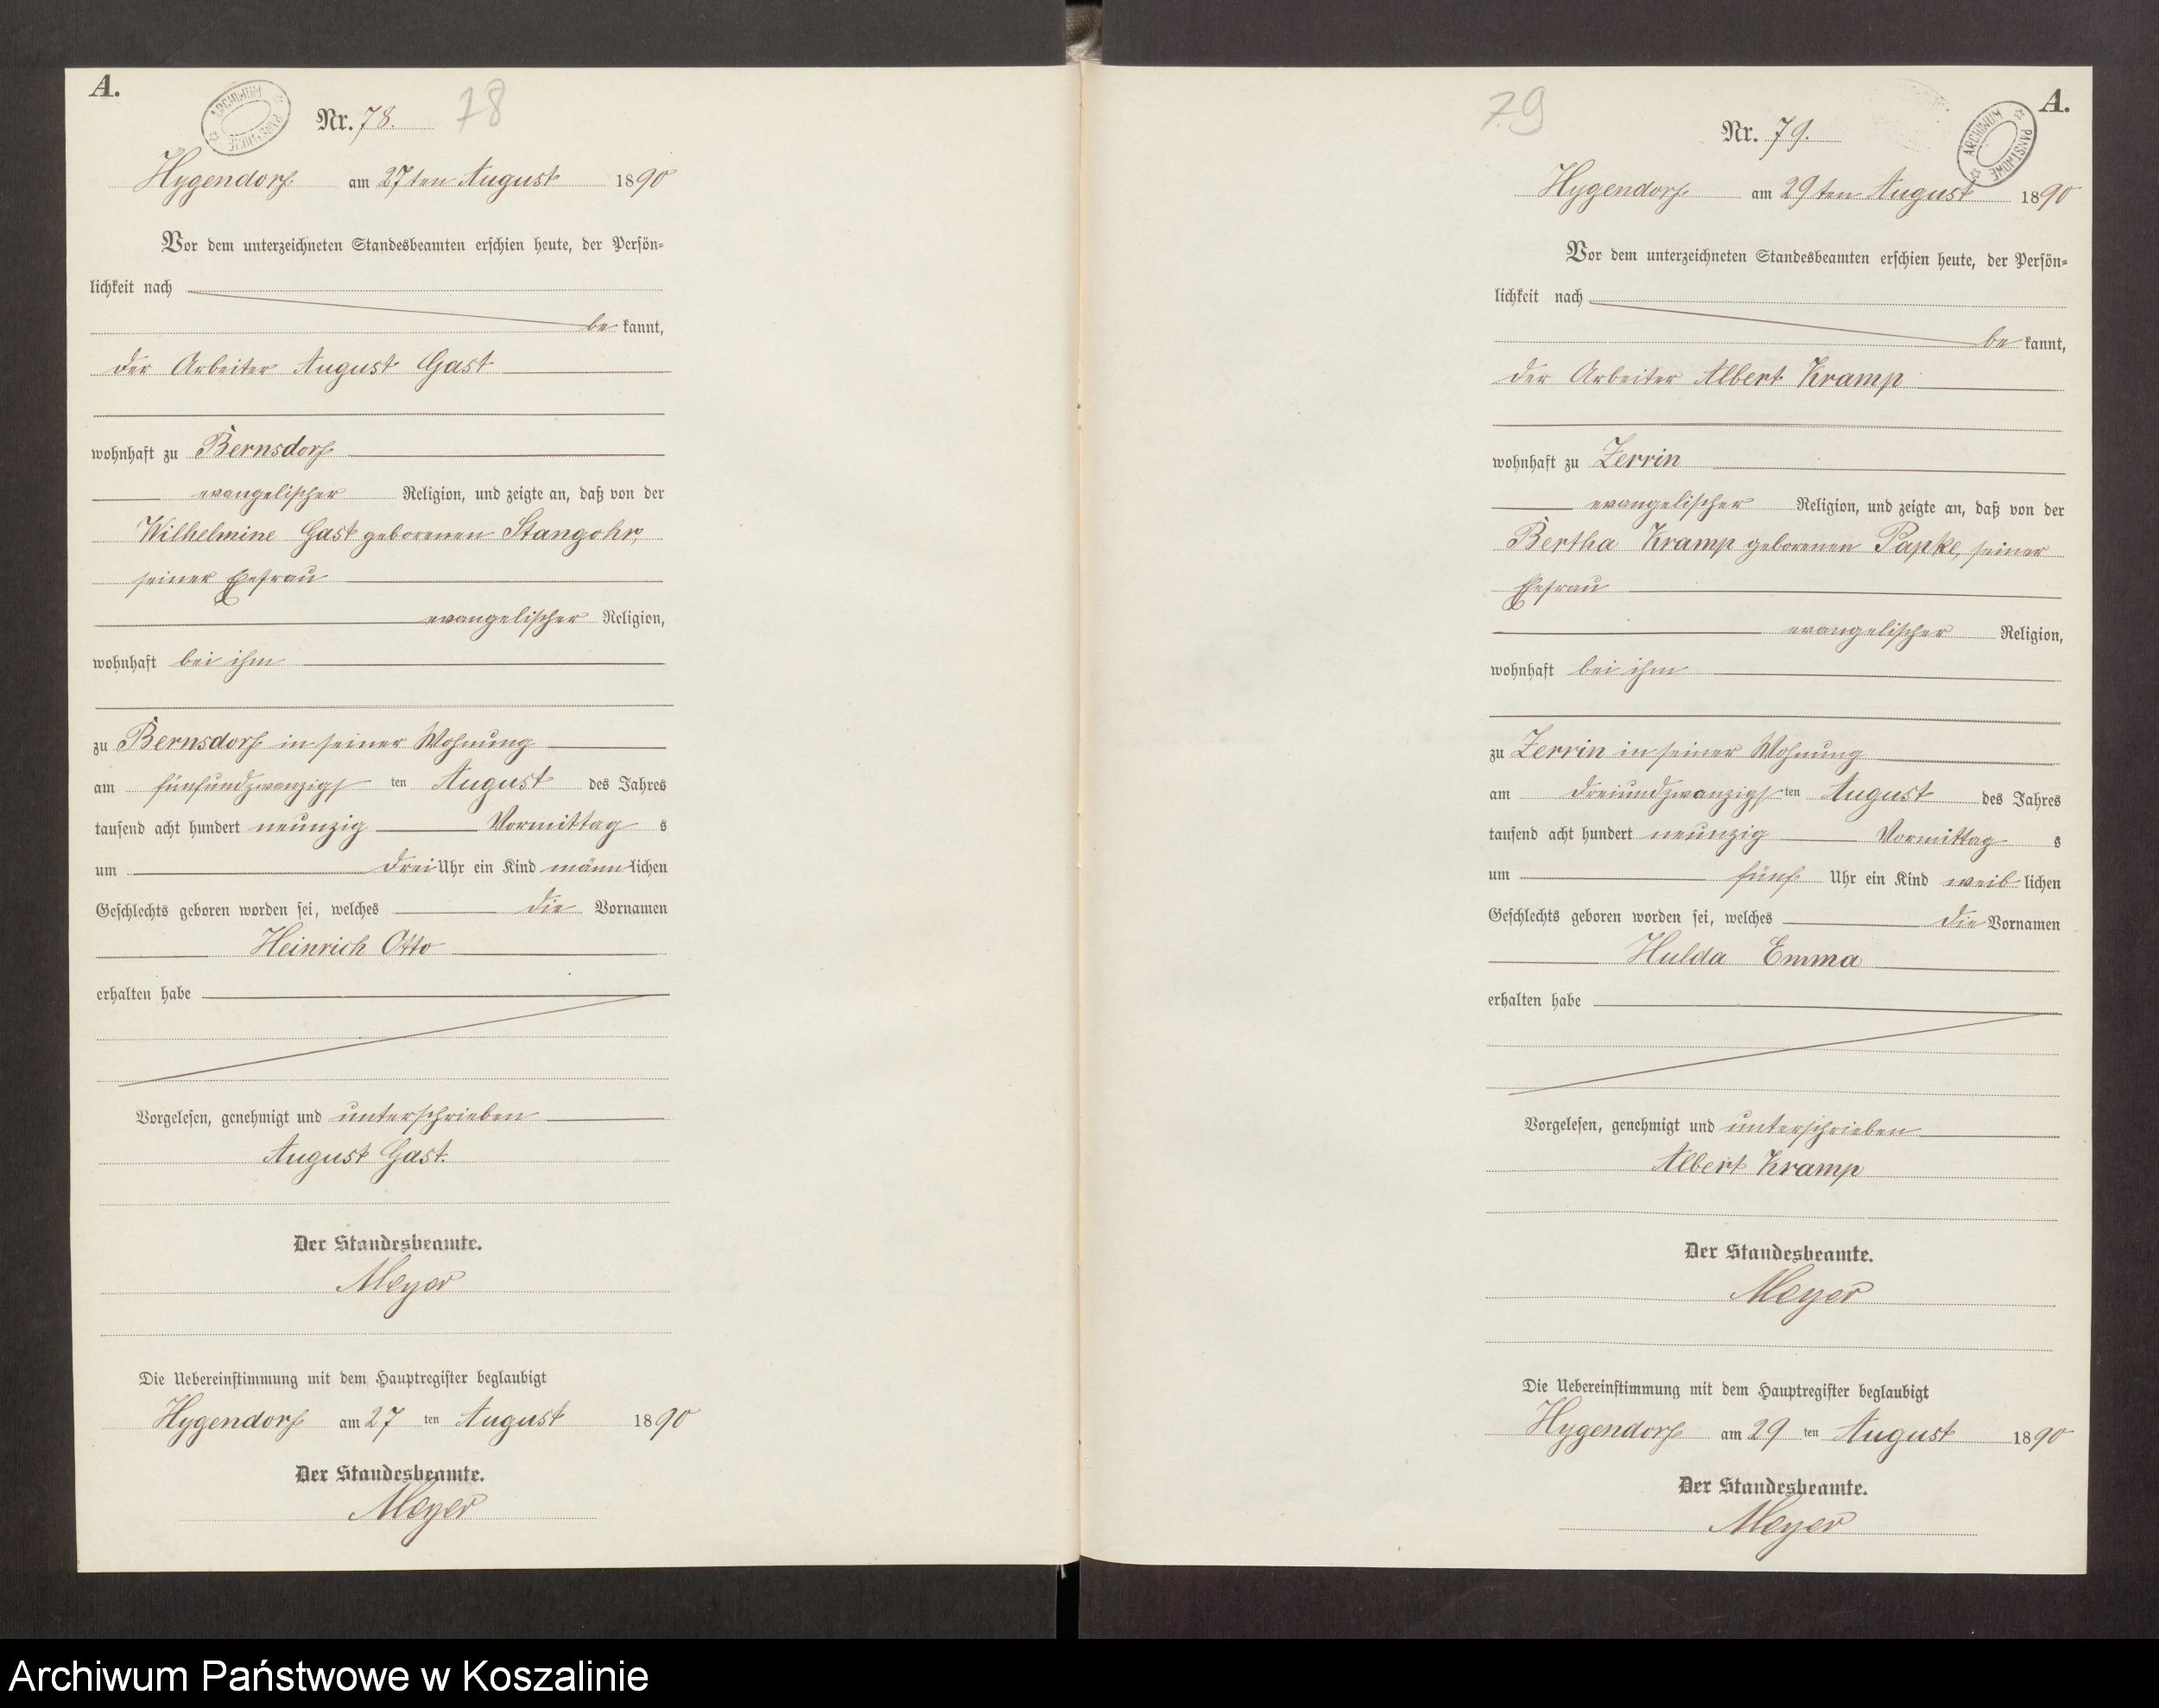 A.
ARCHIWUM PAŃSTWOWE
Nr. 78. 78
Hygendorf am 27ten August 1890
Vor dem unterzeichneten Standesbeamten erschien heute, der Persön-
lichkeit nach
be kannt,
der Arbeiter August Gast
wohnhaft zu Bernsdorf
evangelischer Religion, und zeigte an, daß von der
Wilhelmine Gast geborenen Stangohr,
seiner Ehefrau
evangelischer Religion,
wohnhaft bei ihm
zu Bernsdorf in seiner Wohnung
am fünfundzwanzigsten August des Jahres
tausend acht hundert neunzig Vormittags
um drei Uhr ein Kind männlichen
Geschlechts geboren worden sei, welches die Vornamen
Heinrich Otto
erhalten habe
Vorgelesen, genehmigt und unterschrieben
August Gast.
Der Standesbeamte.
Meyer
Die Uebereinstimmung mit dem Hauptregister beglaubigt
Hygendorf am 27 ten August 1890
Der Standesbeamte.
Meyer
A.
ARCHIWUM PAŃSTWOWE
79 Nr. 79.
Hygendorf am 29ten August 1890
Vor dem unterzeichneten Standesbeamten erschien heute, der Persön-
lichkeit nach
be kannt,
der Arbeiter Albert Kramp
wohnhaft zu Zerrin
evangelischer Religion, und zeigte an, daß von der
Bertha Kramp geborenen Papke, seiner
Ehefrau
evangelischer Religion,
wohnhaft bei ihm
zu Zerrin in seiner Wohnung
am dreiundzwanzigsten August des Jahres
tausend acht hundert neunzig Vormittags
um fünf Uhr ein Kind weiblichen
Geschlechts geboren worden sei, welches die Vornamen
Hulda Emma
erhalten habe
Vorgelesen, genehmigt und unterschrieben
Albert Kramp
Der Standesbeamte.
Meyer
Die Uebereinstimmung mit dem Hauptregister beglaubigt
Hygendorf am 29 ten August 1890
Der Standesbeamte.
Meyer
Archiwum Państwowe w Koszalinie